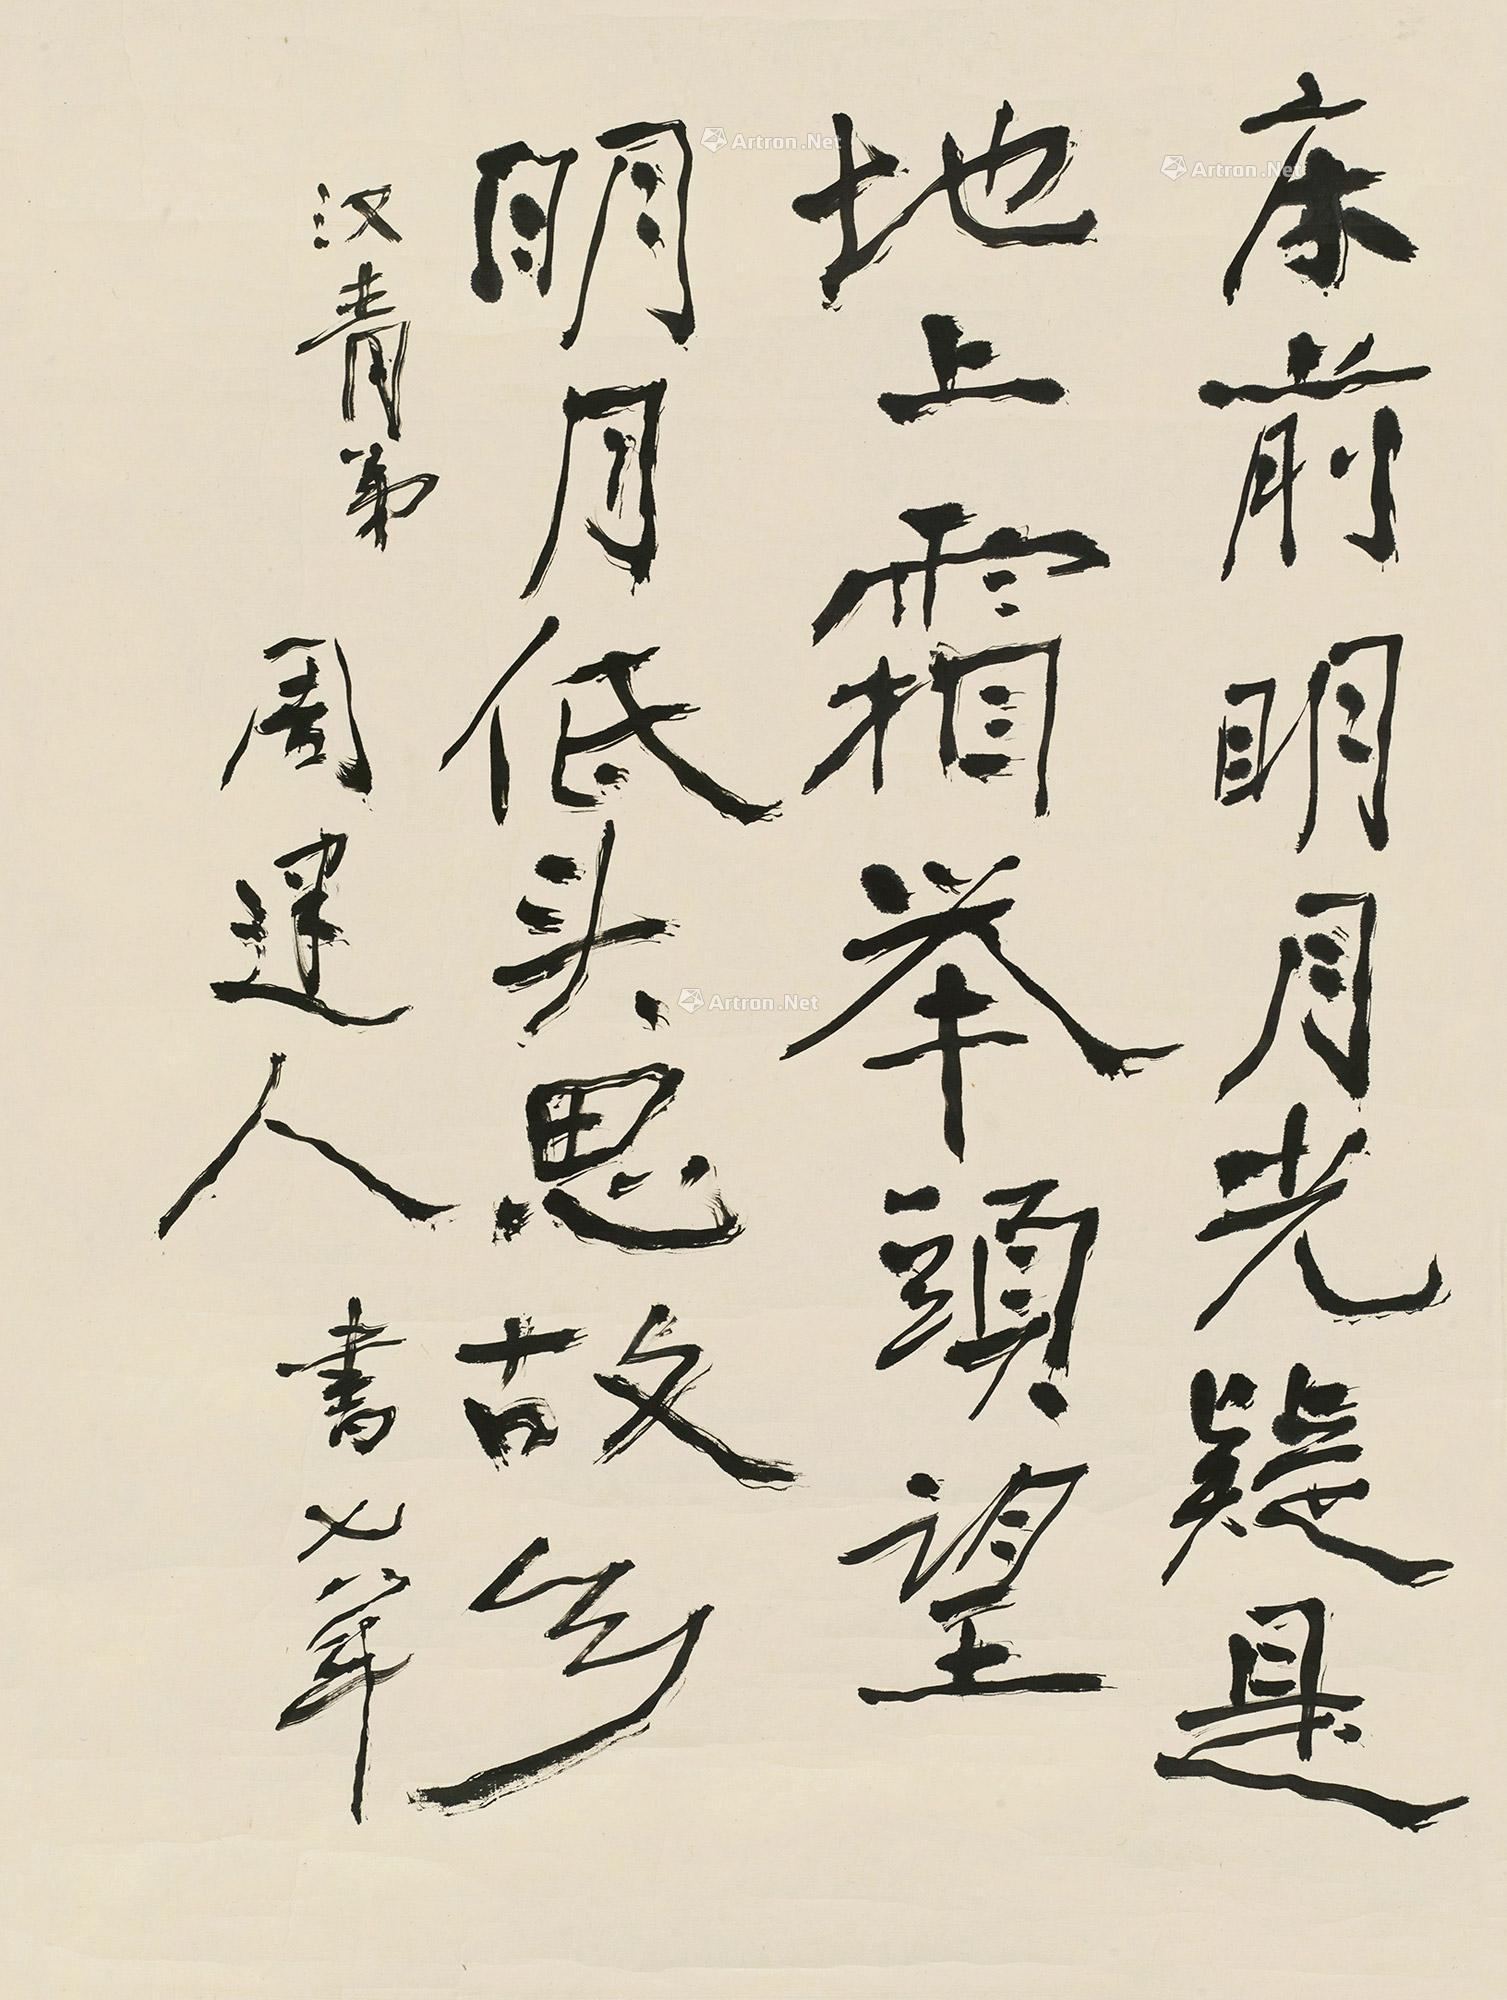 床前明月光疑是
地上霜举頭望
明月低头思故乡
汉青弟
周建人
書七八年
Artron.Net
Artron.Net
Artron.Net